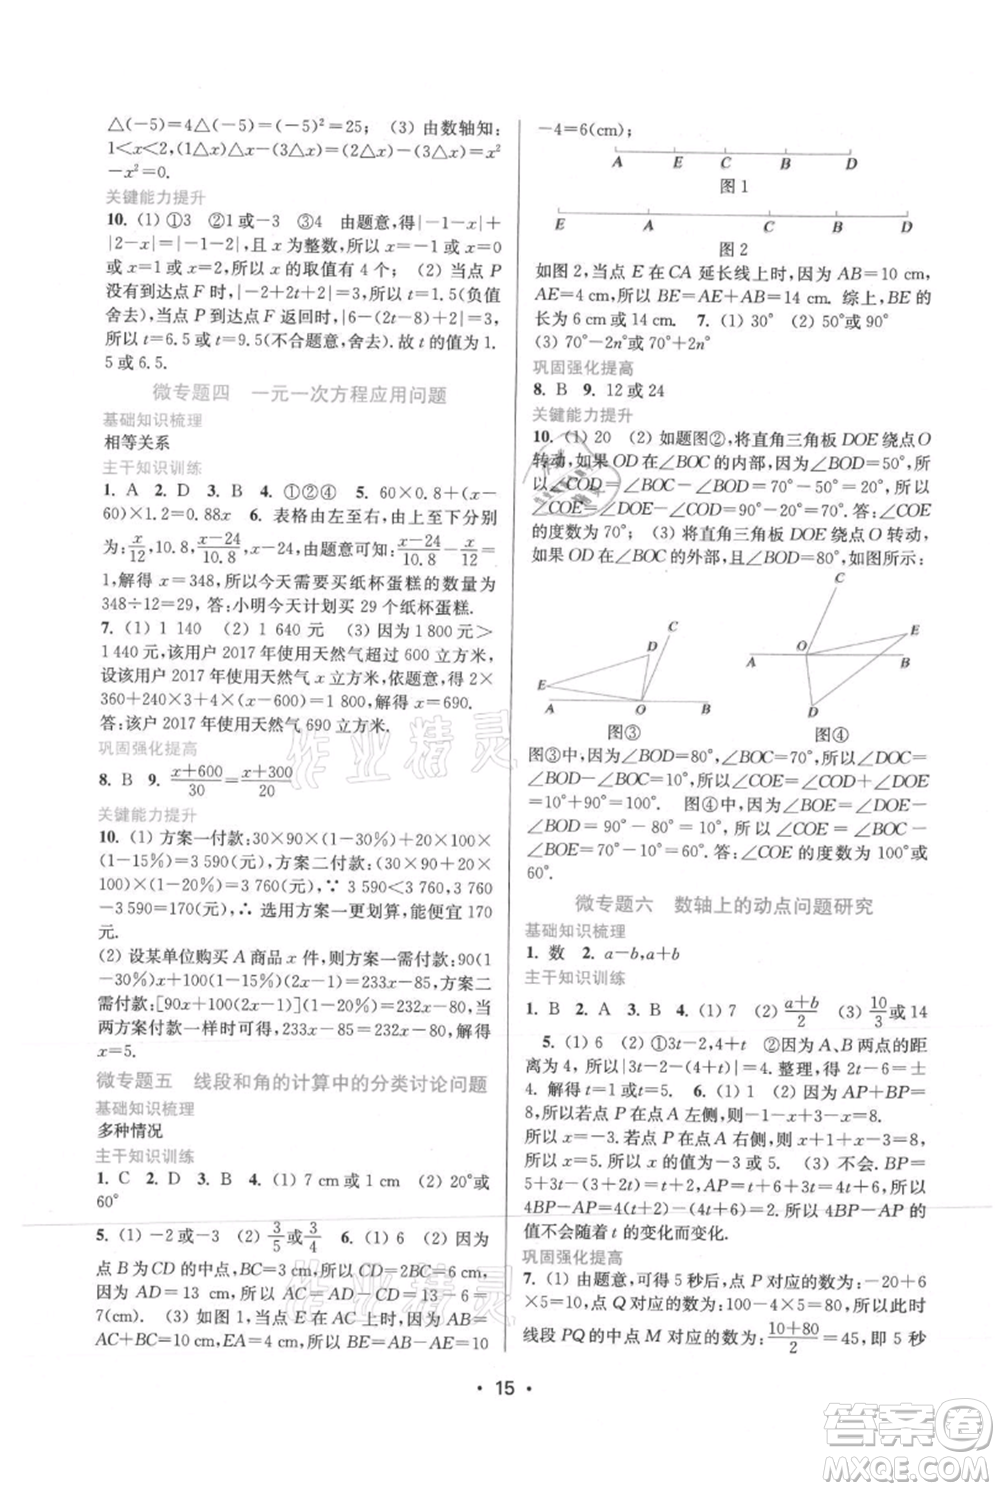 △(-5)=4△(-5)=(-5)²=25； (3) 由数轴知：
1<x<2,(1△x)△x-(3△x)=(2△x)-(3△x)=x²
-x²=0.
关键能力提升
10. (1) ①3 ②1或-3 ③4 由题意,得|-1-x|+
|2-x|=|-1-2|,且 x 为整数,所以 x=-1 或 x=0
或 x=1 或 x=2,所以 x 的取值有 4 个； (2) 当点 P
没有到达点 F 时,|-2+2t-2t|+t=3,t=1.5(负值
舍去)；当点 P 到达点 F 返回时,|6-(2t-8)+2|=3,
所以 t=6.5 或 t=9.5(不合题意,舍去).故 t 的值为 1.
5 或 6.5.
微专题四 一元一次方程应用问题
基础知识梳理
相等关系
主干知识训练
1. A 2. D 3. B 4. ①②④ 5. 60×0.8+(x-
60)×1.2=0.88x 6. 表格由左至右,由上至下分别
为:x/12,10.8,(x-24)/10.8,x-24 由题意,得(x-24)/10.8-x/12=
1,解得 x=348,所以今天需要买纸杯蛋糕的数量为
348÷12=29,答:小明今天计划买 29 个纸杯蛋糕.
7. (1) 1 140 (2) 1 640 元 (3) 因为 1 800 元>
1 440 元,该用户 2017 年使用天然气超过 600 立方米,
设该用户 2017 年使用天然气 x 立方米,依题意,得 2×
360+240×3+4×(x-600)=1 800,解得 x=690.
答:该户 2017 年使用天然气 690 立方米.
巩固强化提高
8. B 9. (x+600)/30=(x+300)/20
关键能力提升
10. (1) 方案一付款:30×90×(1-30%)+20×100×
(1-15%)=3 590(元),方案二付款:(30×90+20×
100)×(1-20%)=3 760(元),∵ 3 590<3 760,3 760
-3 590=170(元),∴ 选用方案一更划算,能便宜 170
元.
(2) 设某单位购买 A 商品 x 件,方案一需付款:90(1
-30%)x+100(1-15%)(x-1)=233-85,方案二
需付款:[90x+100(x-1)](1-20%)=152x-80,当
两方案付款一样时可得,233x-85=152x-80,解得
x=5.
微专题五 线段和角的计算中的分类讨论问题
基础知识梳理
多种情况
主干知识训练
1. C 2. D 3. B 4. (1) 7 cm 或 1 cm (2) 20°或
60°
5. (1) -2 或 -3 (2) 3/5或3/4 6. (1) 6 (2) 因为
点 B 为 CD 的中点,BC=3 cm,所以 CD=2BC=6 cm,
因为 AD=13 cm,所以 AC=AD-CD=13-6=
7(cm)； (3) 如图 1,当点 E 在 AC 上时,因为 AB=
AC+BC=10 cm,EA=4 cm,所以 BE=AB-AE=10
-4=6(cm)；
A E C B D
图 1
E A C B D
图 2
如图 2,当点 E 在 CA 延长线上时,因为 AB=10 cm,
AE=4 cm,所以 BE=AE+AB=14 cm. 综上,BE 的
长为 6 cm 或 14 cm. 7. (1) 30° (2) 50°或 90°
(3) 70°-2n°或 70°+2n°
巩固强化提高
8. B 9. 12 或 24
关键能力提升
10. (1) 20 (2) 如题图②,将直角三角板 DOE 绕点 O
转动,如果 OD 在∠BOC 的内部,因为∠BOD=50°,所
以∠COD=∠BOC-∠BOD=70°-50°=20°,所以
∠COE=∠DOE-∠COD=90°-20°=70°. 答:∠COE
的度数为 70°； (3) 将直角三角板 DOE 绕点 O 转动,
如果 OD 在∠BOC 的外部,且∠BOD=80°,如图所示:
C D E A O B
图③
C E A O B D
图④
图③中,因为∠BOD=80°,∠BOC=70°,所以∠DOC=
∠BOD-∠BOC=10°,所以∠COE=∠COD+∠DOE=
10°+90°=100°. 图④中,因为∠BOE=∠DOE-
∠BOD=90°-80°=10°,所以∠COE=∠BOC-
∠BOE=70°-10°=60°. 答:∠COE 的度数为 100°或
60°.
微专题六 数轴上的动点问题研究
基础知识梳理
1. 数 2. a-b,a+b
主干知识训练
1. B 2. A 3. B 4. (1) 7 (2) (a+b)/2 (3) 10/3或 14
5. (1) 6 (2) ①-2+3t,4+t ②因为 A、B 两点的距
离为 4,所以|3t-2-(4+t)|=4. 整理,得 2t-6=±
4. 解得 t=5 或 t=1. 6. (1) 1 (2) 因为 AP+BP=
8,所以若点 P 在点 A 左侧,则-1-x+3-x=8.
所以 x=-3.若点 P 在点 A 右侧,x+1+x-3=8.
所以 x=5.所以 x 的值为-3 或 5. (3) 不会.AP=t+
5+4t-(3+2t)=3t+2,BP=t+6+3+2t=3t+3,所以
4BP-AP=4(3t+3)-(3t+2)=
值不会随着 t 的变化而变化.
巩固强化提高
7. (1) 由题意,可得 5 秒后,点 P 对应的数为:-20+6
×5=10,点 Q 对应的数为:100-4×5=80,所以此时
线段 PQ 的中点 M 对应的数为:(10+80)/2=45,即 5 秒
· 15 ·
作业精灵
作业精灵
答案卷
MXQE.COM